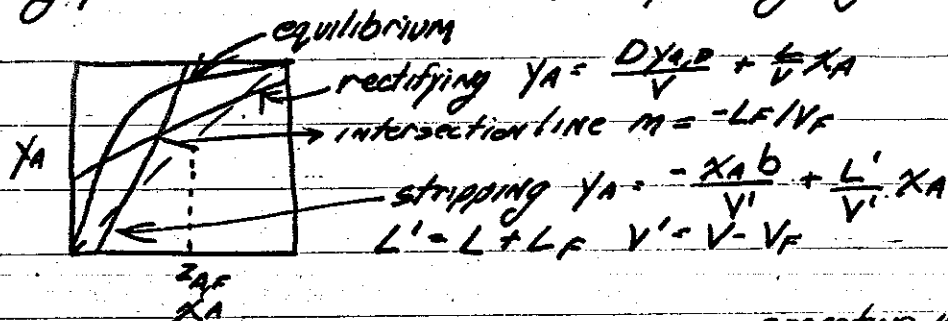 equilibrium
rectifying yA = DyA,D/V + L/V xA
intersection line m = -LF/VF
yA
stripping yA = -xA b/V' + L'/V' xA
L' = L + LF V' = V - VF
zA,F
xA